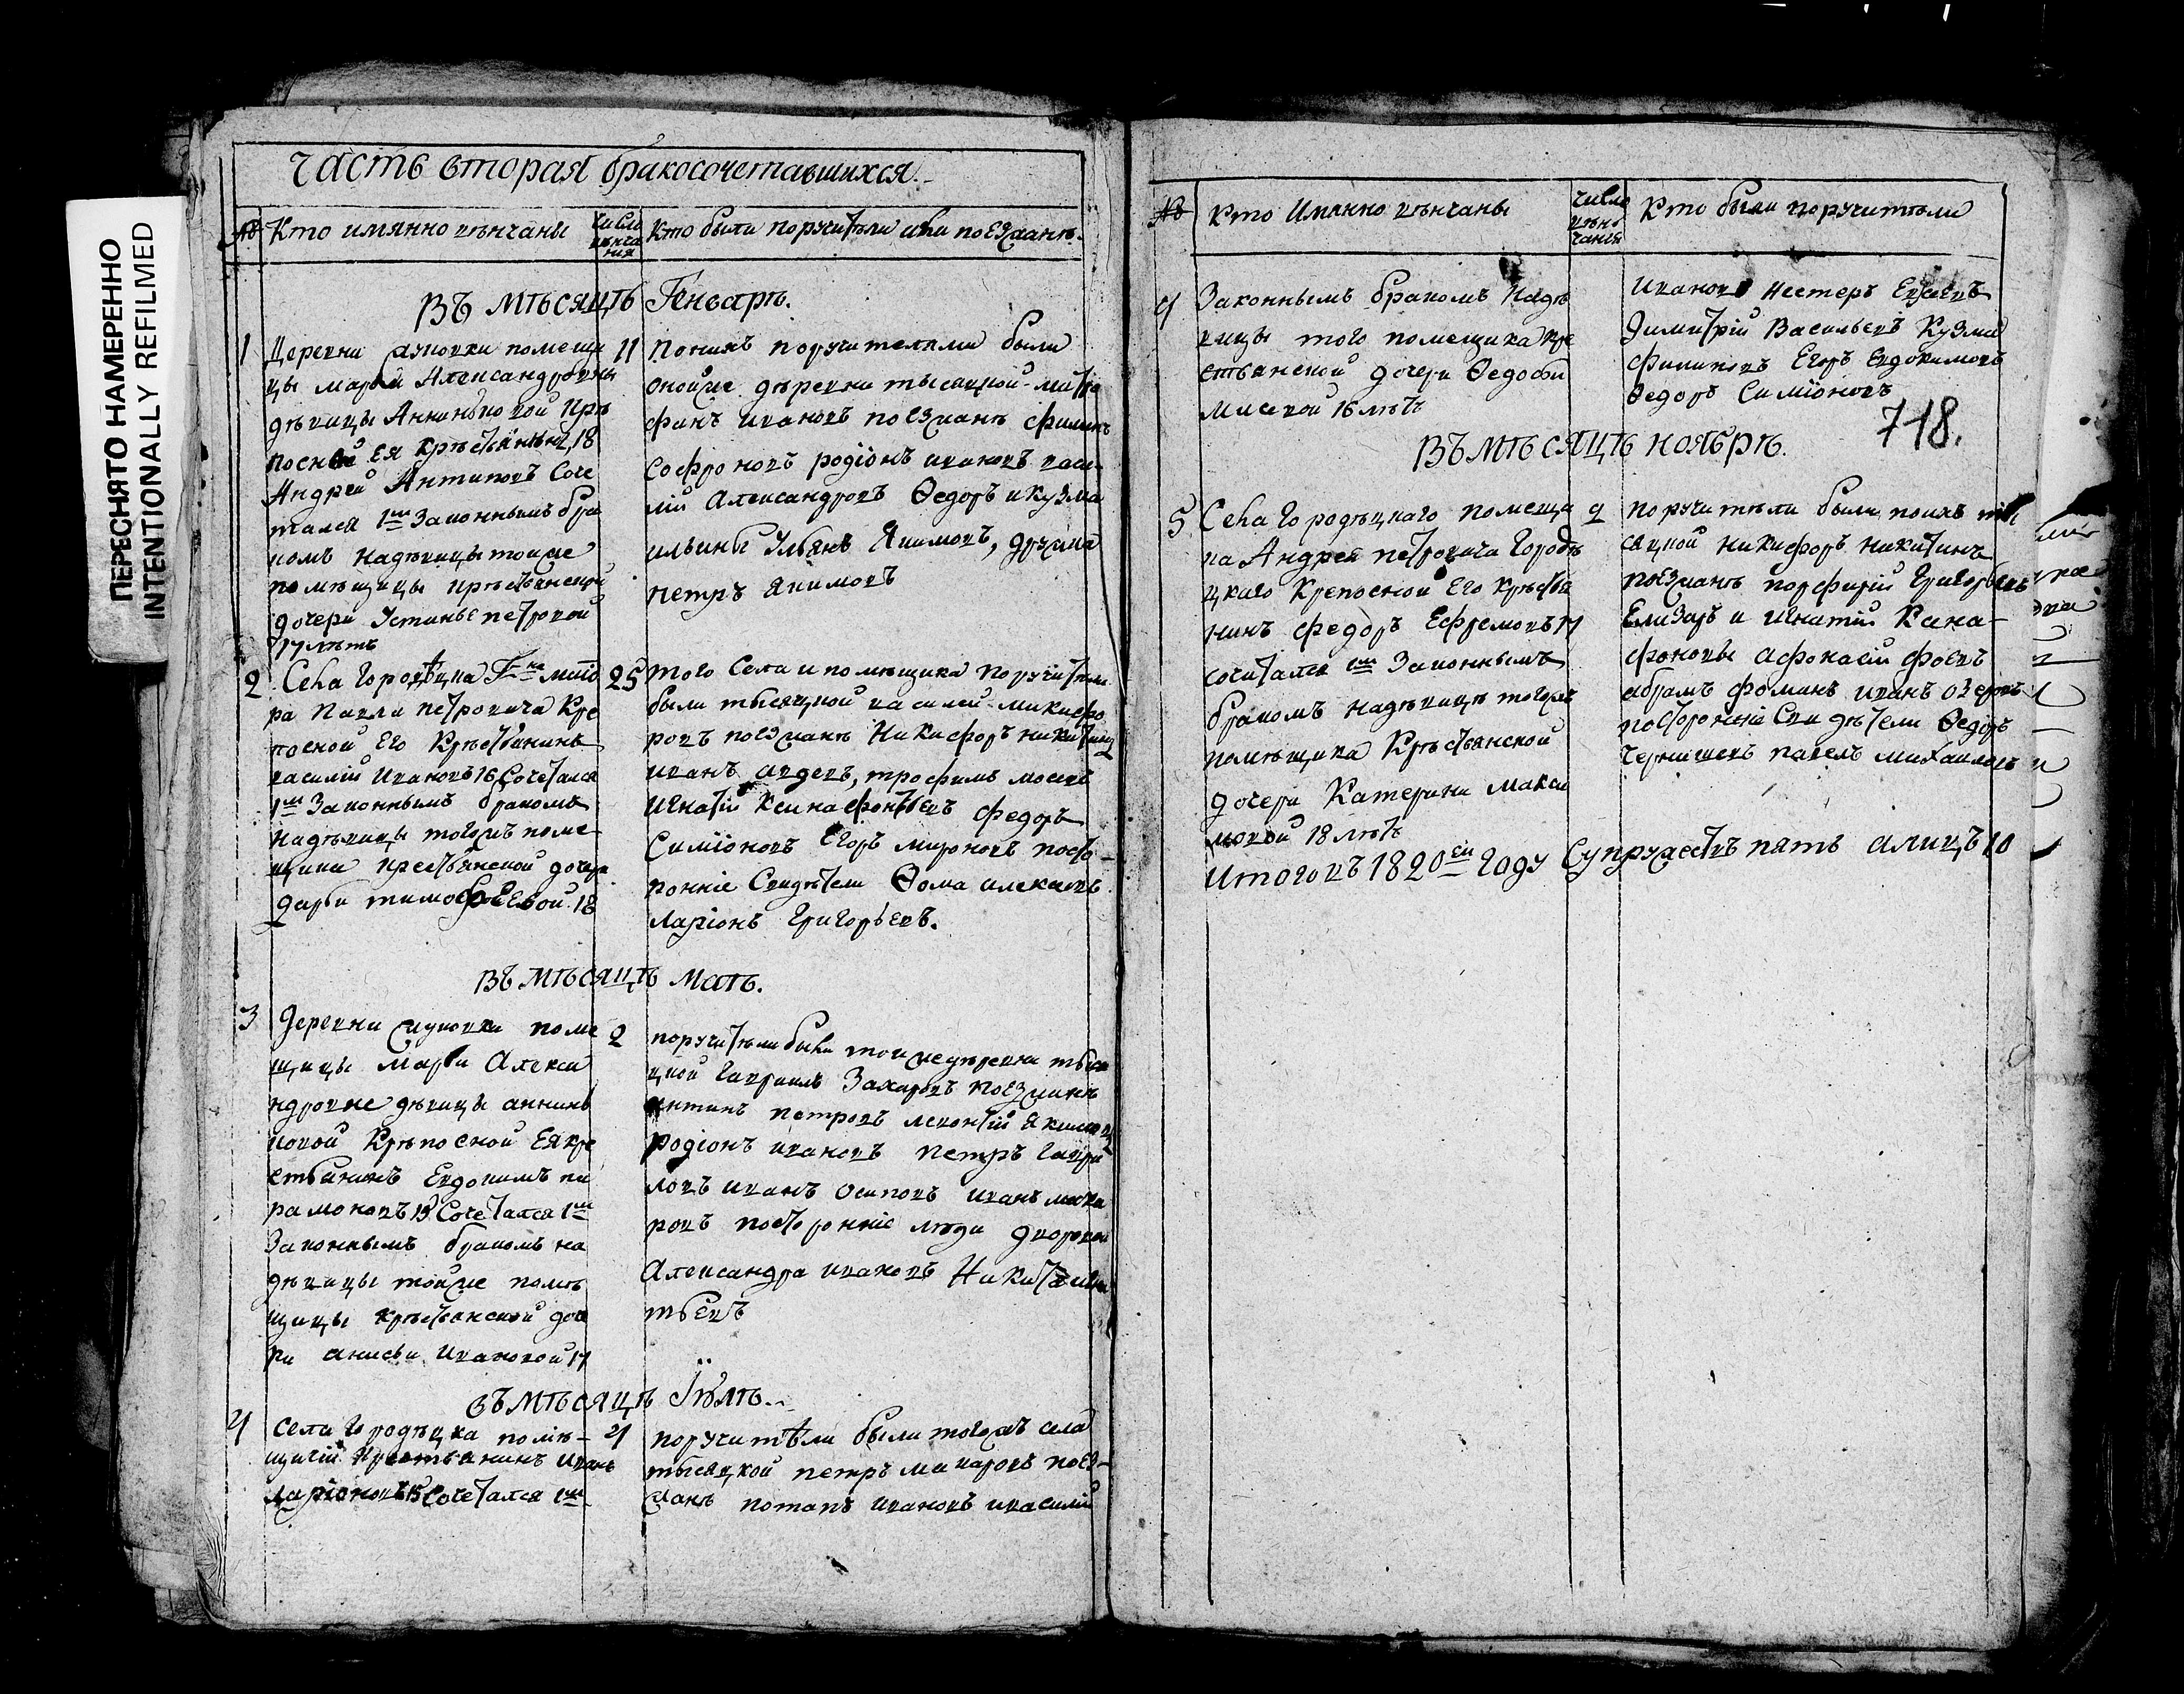 ПЕРЕСНЯТО НАМЕРЕННО
INTENTIONALLY REFILMED
Часть вторая бракосочетавшихся.
№ Кто имянно вѣнчаны
Число вѣнчания
Кто были поручители или поезжанѣ.
Въ мѣсяцѣ Генварѣ.
1
Деревни помещи
цы Марьи Александровны
дѣвицы Анниньковой Крѣ
посной ея крѣстьянинъ 18
Андрей Антиповъ Соче
тался 1мъ Законнымъ бра
комъ надѣвицы тойже
помѣщицы крѣстьянской
дочери Устинье Петровой
17 лѣтъ
11
Понихъ поручителями были
онойже деревни тысяцкой Митро
фанъ Ивановъ поезжанѣ Филипъ
Софроновъ Родіонъ Ивановъ Васи
лій Александровъ Ѳедоръ и Кузма
ильины Ульянъ Якимовъ, дружка
петръ Якимовъ
2
Села Городѣцка
ра Павла Петровича Кре
посной Его Крѣстьянинъ
василій Ивановъ 16 Сочетался
1мъ Законнымъ бракомъ
надѣвицы тогожъ поме
щика крестьянской дочери
дарьи тимофѣевой 18
25
того Села и помѣщика Поручители
были тысяцкой василей Никифо
ровъ поезжанѣ Никифоръ Никитинъ
иванъ авдеевъ, трофимъ мосеевъ
Игнатій Ксинафонтьевъ федоръ
Симіоновъ Егоръ мироновъ посто
ронніе Свидѣтели Ѳома алексеевъ
ларіонъ Григорьевъ.
Въ мѣсяцѣ Маѣ.
3
Деревни поме
щицы Марьи Алекса
ндровне дѣвицы аннинь
ковой Крѣпосной Ея кре
стьянинъ Евдокимъ па
рамоновъ Сочетался 1мъ
Законнымъ бракомъ на
дѣвицы тойже помѣ
щицы крѣстьянской доче
ри анисьи Ивановой 17
2
поручители были тойже деревни тыся
цкой Гавриилъ Захаровъ поезжанѣ
антипъ петровъ леонтій Якимовъ
родіонъ ивановъ петръ Гаври
ловъ иванъ Осиповъ иванъ мака
ровъ посторонніе люди дворовои
Александра ивановъ Никита игна
тьевъ
въ мѣсяцѣ Іюлѣ.
4
Села Городѣцка помѣ-
щичій Крестьянинъ Иванъ
Ларіоновъ Сочетался 1мъ
4
поручители были тогожъ села
тысяцкой петръ макаровъ поез-
жанѣ потапъ ивановъ ивасилій
№ Кто Имянно вѣнчаны
Число вѣнчания
Кто были поручители
4
Законнымъ бракомъ Надѣ
вицы того помещика кре
стьянской дочери Ѳедосьи
16 лѣтъ
Ивановъ Нестеръ
Димитрій Васильевъ Кузма
Филиповъ Егоръ Евдокимовъ
Ѳедоръ Симіоновъ
718.
Въ мѣсяцѣ Ноябрѣ.
5
Села Городѣцкаго помеща
ка Андрея петровича Городѣ
цкаго Крепосной Его Крѣстья
нинъ Федоръ Ефремовъ 17
сочетался 1мъ Законнымъ
бракомъ надѣвицѣ тогожъ
помѣщика Крѣстьянской
дочери Катерины Макси
мовой 18 лѣтъ
9
поручители были понихъ ты
сяцкой Никифоръ Никитинъ
поезжанѣ порфирій Григорьевъ
Елизаръ и Игнатій
афонасій
абрамъ фоминъ иванъ
посторонніе Свидѣтели Ѳедоръ
Чернышевъ павелъ михаиловъ
Итого въ 1820ом Году Супружествъ пять а лицъ 10